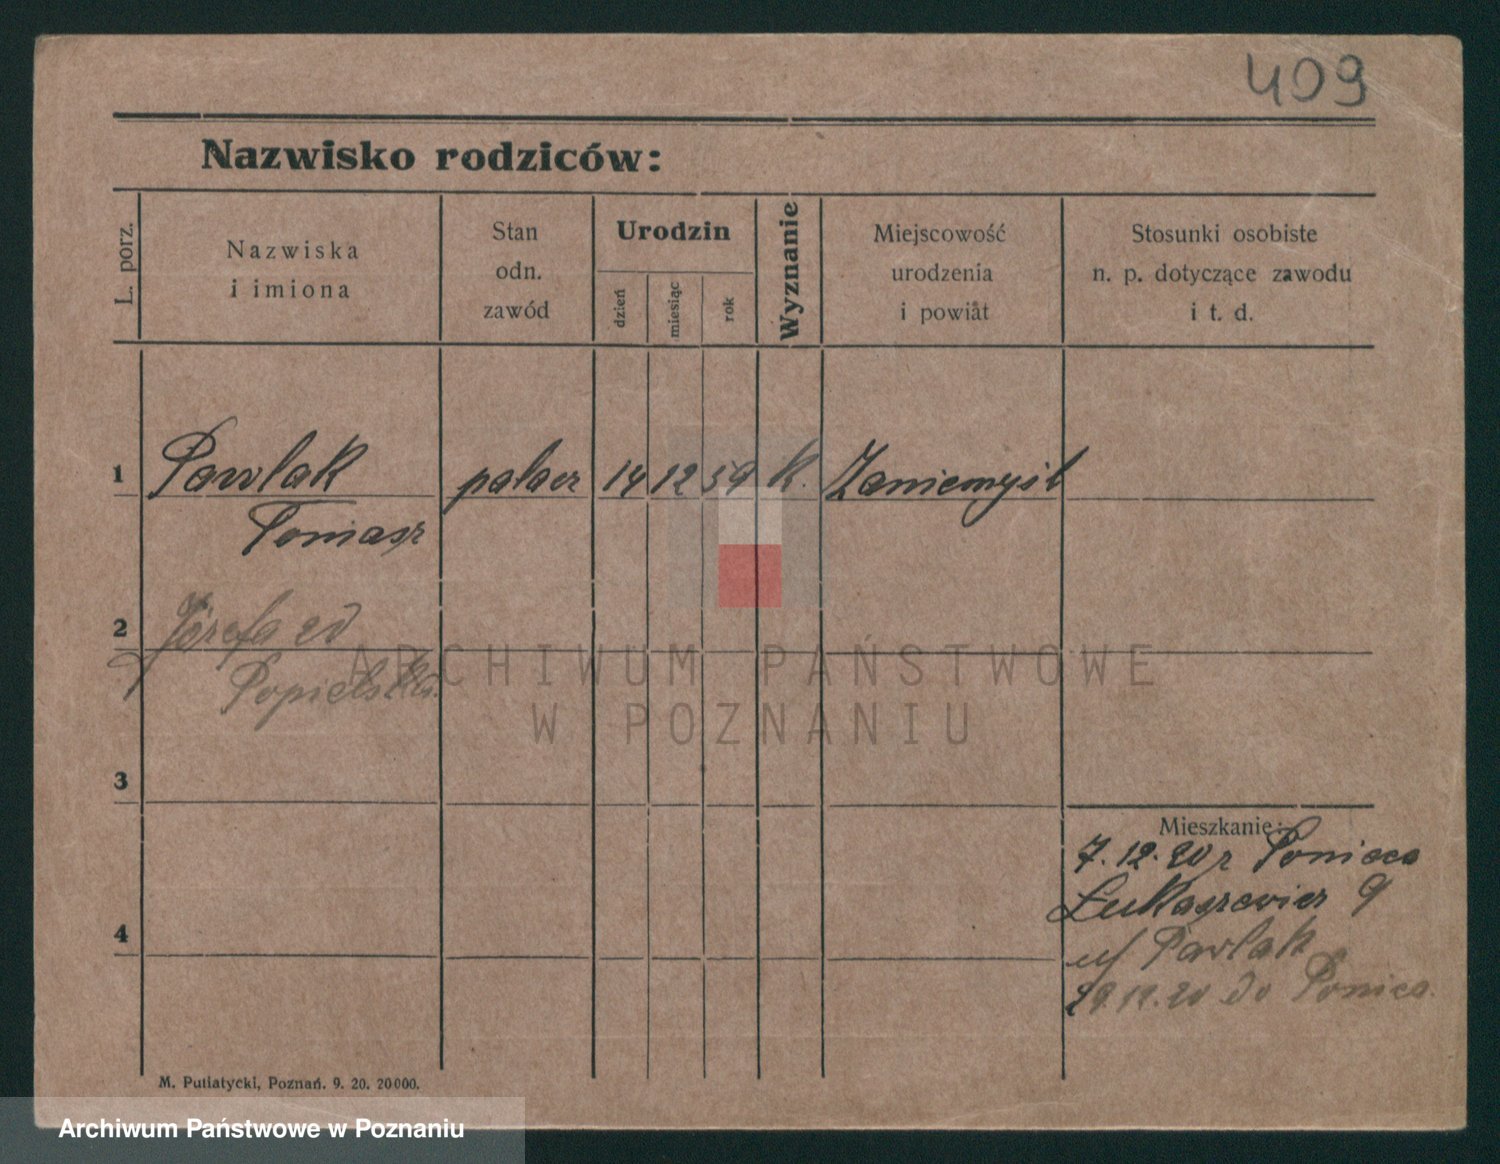 409
Nazwisko rodziców:
L. porz.
Nazwiska
i imiona
Stan
odn.
zawód
Urodzin
dzień
miesiąc
rok
Wyznanie
Miejscowość
urodzenia
i powiat
Stosunki osobiste
n. p. dotyczące zawodu
i t. d.
1
Pawlak
Tomasz
palacz
14 12 59
K.
Zaniemyśl
2
Józefa zd
Popielska
3
4
Mieszkanie:
7.12.20 z Ponieca
Łukaszewicz 9
u/ Pawlak
29.12.20 do Poniec.
M. Putiatycki, Poznań. 9. 20. 20000.
ARCHIWUM PAŃSTWOWE
W POZNANIU
Archiwum Państwowe w Poznaniu